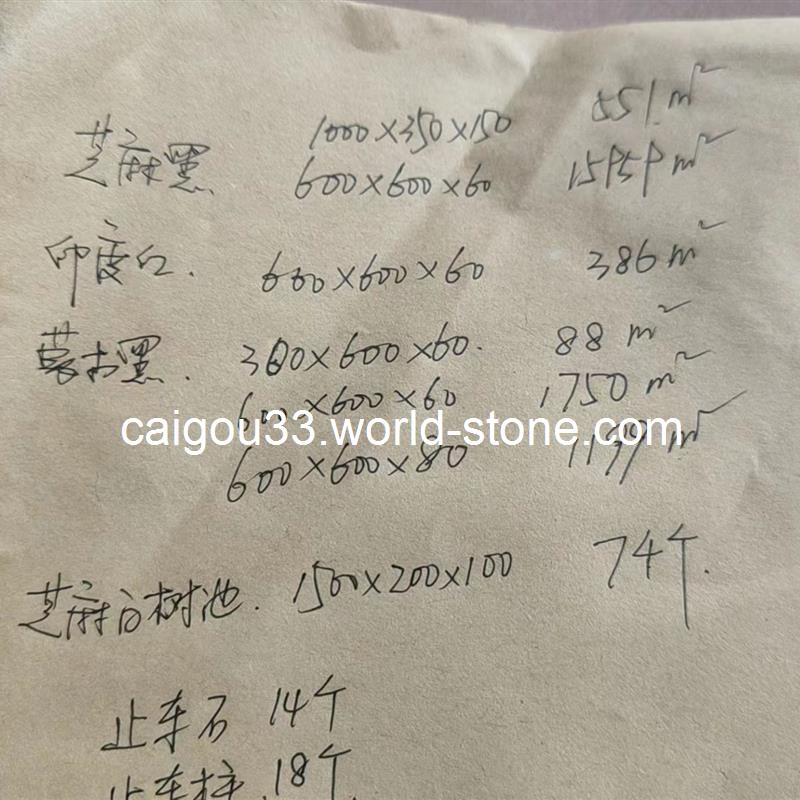 芝麻黑 1000×350×150 551m²
600×600×60 15959m²
印度红. 600×600×60 386m²
蒙古黑. 300×600×60. 88m²
600×600×60 1750m²
caigou33.world-stone.com
600×600×80 1199m²
芝麻白树池. 1500×200×100 74个.
止车石 14个
止车柱.18个